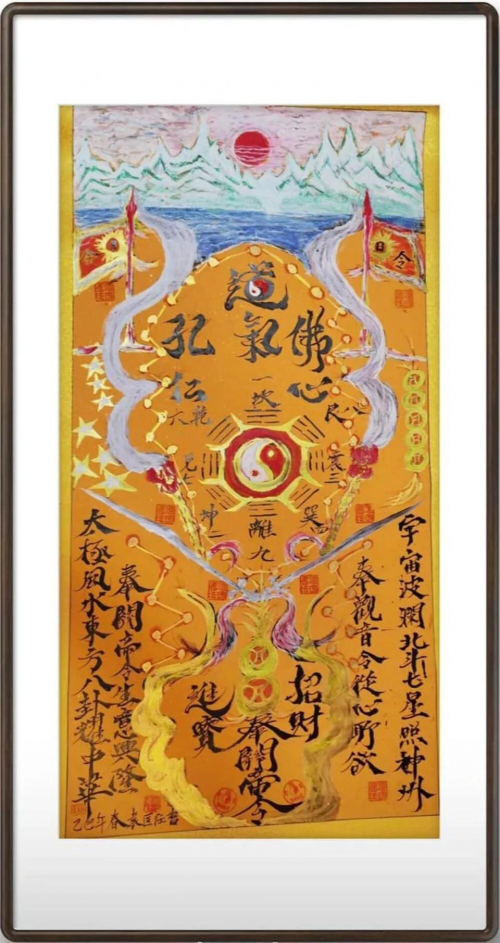 令
日 令
道氣
佛心
孔仁
一坎
乾六
艮八
震三
巽四
離九
坤二
兌七
宇宙波 北斗七星照神州
奉觀音令從心所欲
招財
奉關帝令
進寶
奉關帝令生意興隆
太極風水東方八卦耀中華
乙巳年春